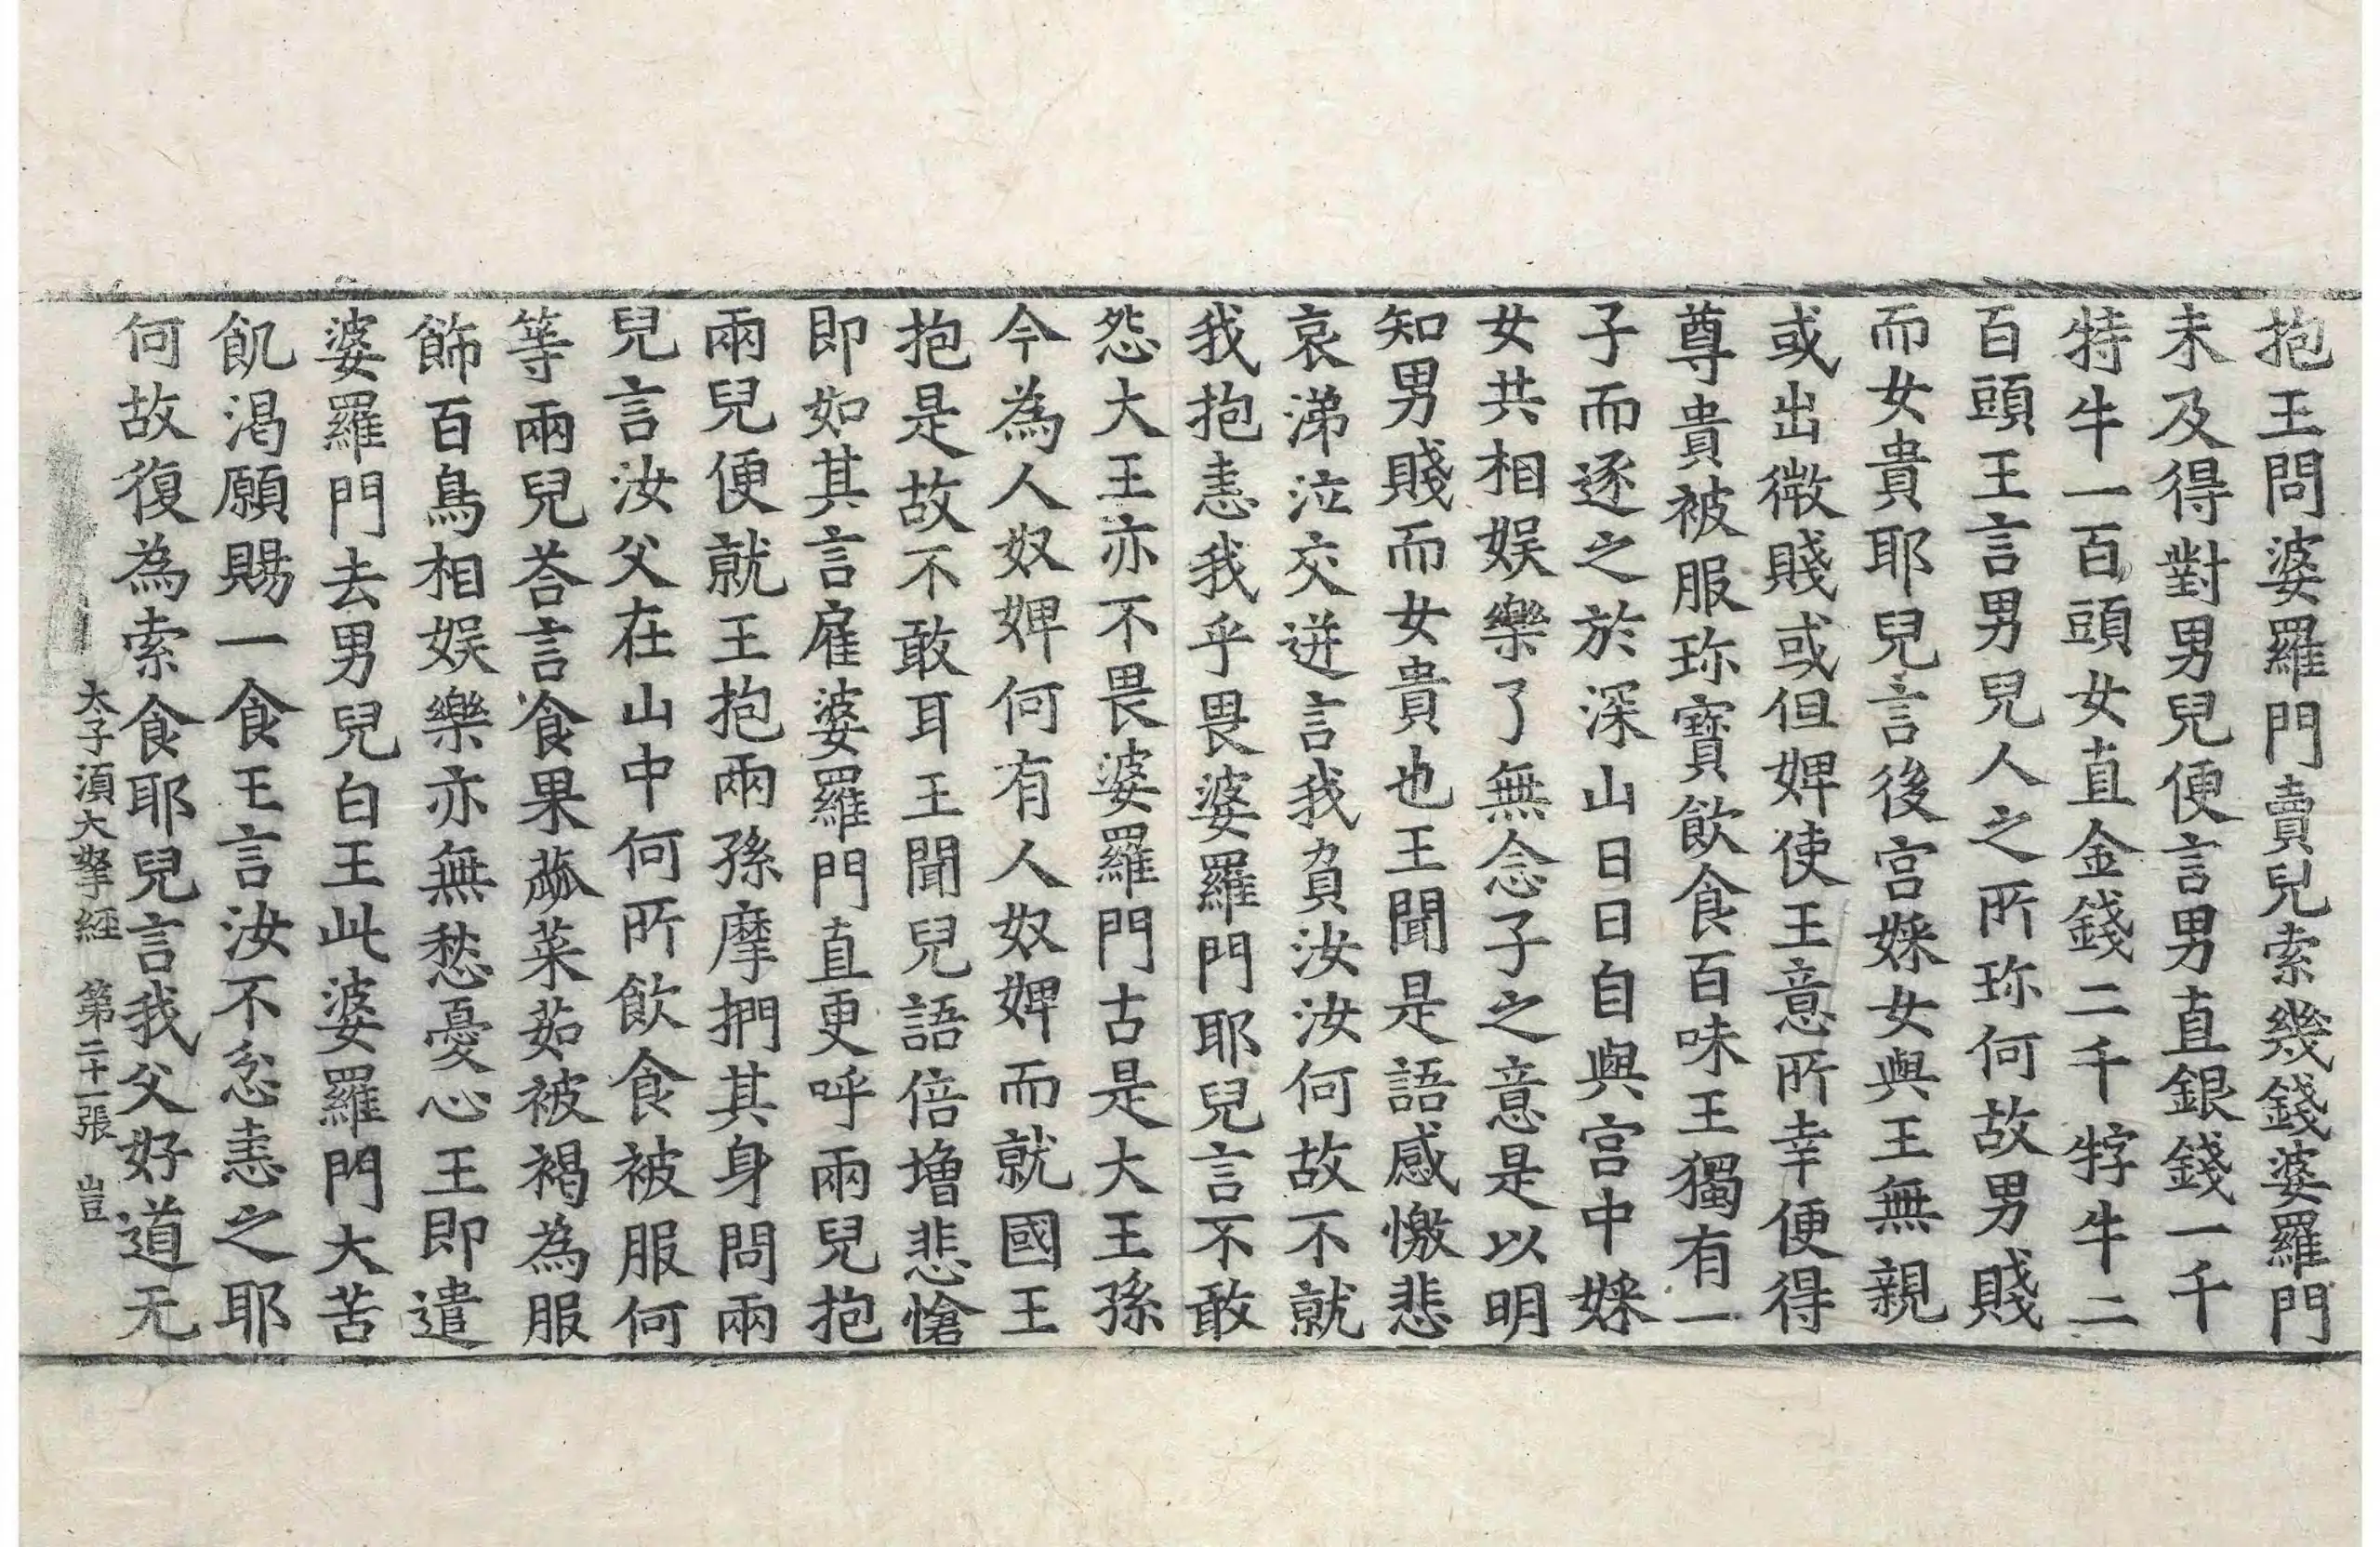 抱王問婆羅門賣兒索幾錢婆羅門
未及得對男兒便言男直銀錢一千
特牛一百頭女直金錢二千牸牛二
百頭王言男兒人之所珎何故男賤
而女貴耶兒言後宮婇女與王無親
或出微賤或但婢使王意所幸便得
尊貴被服珎寶飲食百味王獨有一
子而逐之於深山日日自與宮中婇
女共相娛樂了無念子之意是以明
知男賤而女貴也王聞是語感憿悲
哀涕泣交迸言我負汝汝何故不就
我抱恚我乎畏婆羅門耶兒言不敢
怨大王亦不畏婆羅門古是大王孫
今為人奴婢何有人奴婢而就國王
抱是故不敢耳王聞兒語倍增悲愴
即如其言雇婆羅門直更呼兩兒抱
兩兒便就王抱兩孫摩捫其身問兩
兒言汝父在山中何所飲食被服何
等兩兒荅言食果蓏菜茹被褐為服
飾百鳥相娛樂亦無愁憂心王即遣
婆羅門去男兒白王此婆羅門大苦
飢渴願賜一食王言汝不忿恚之耶
何故復為索食耶兒言我父好道无
太子湏大拏經 第二十一張 豈